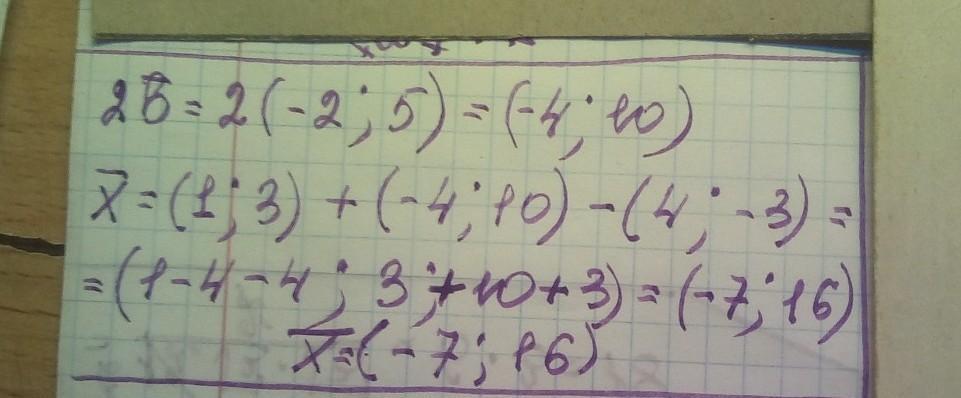 2b̄ = 2(-2; 5) = (-4; 10)
x̄ = (1; 3) + (-4; 10) - (4; -3) =
= (1-4-4; 3;+10+3) = (-7; 16)
x̄ = (-7; 16)